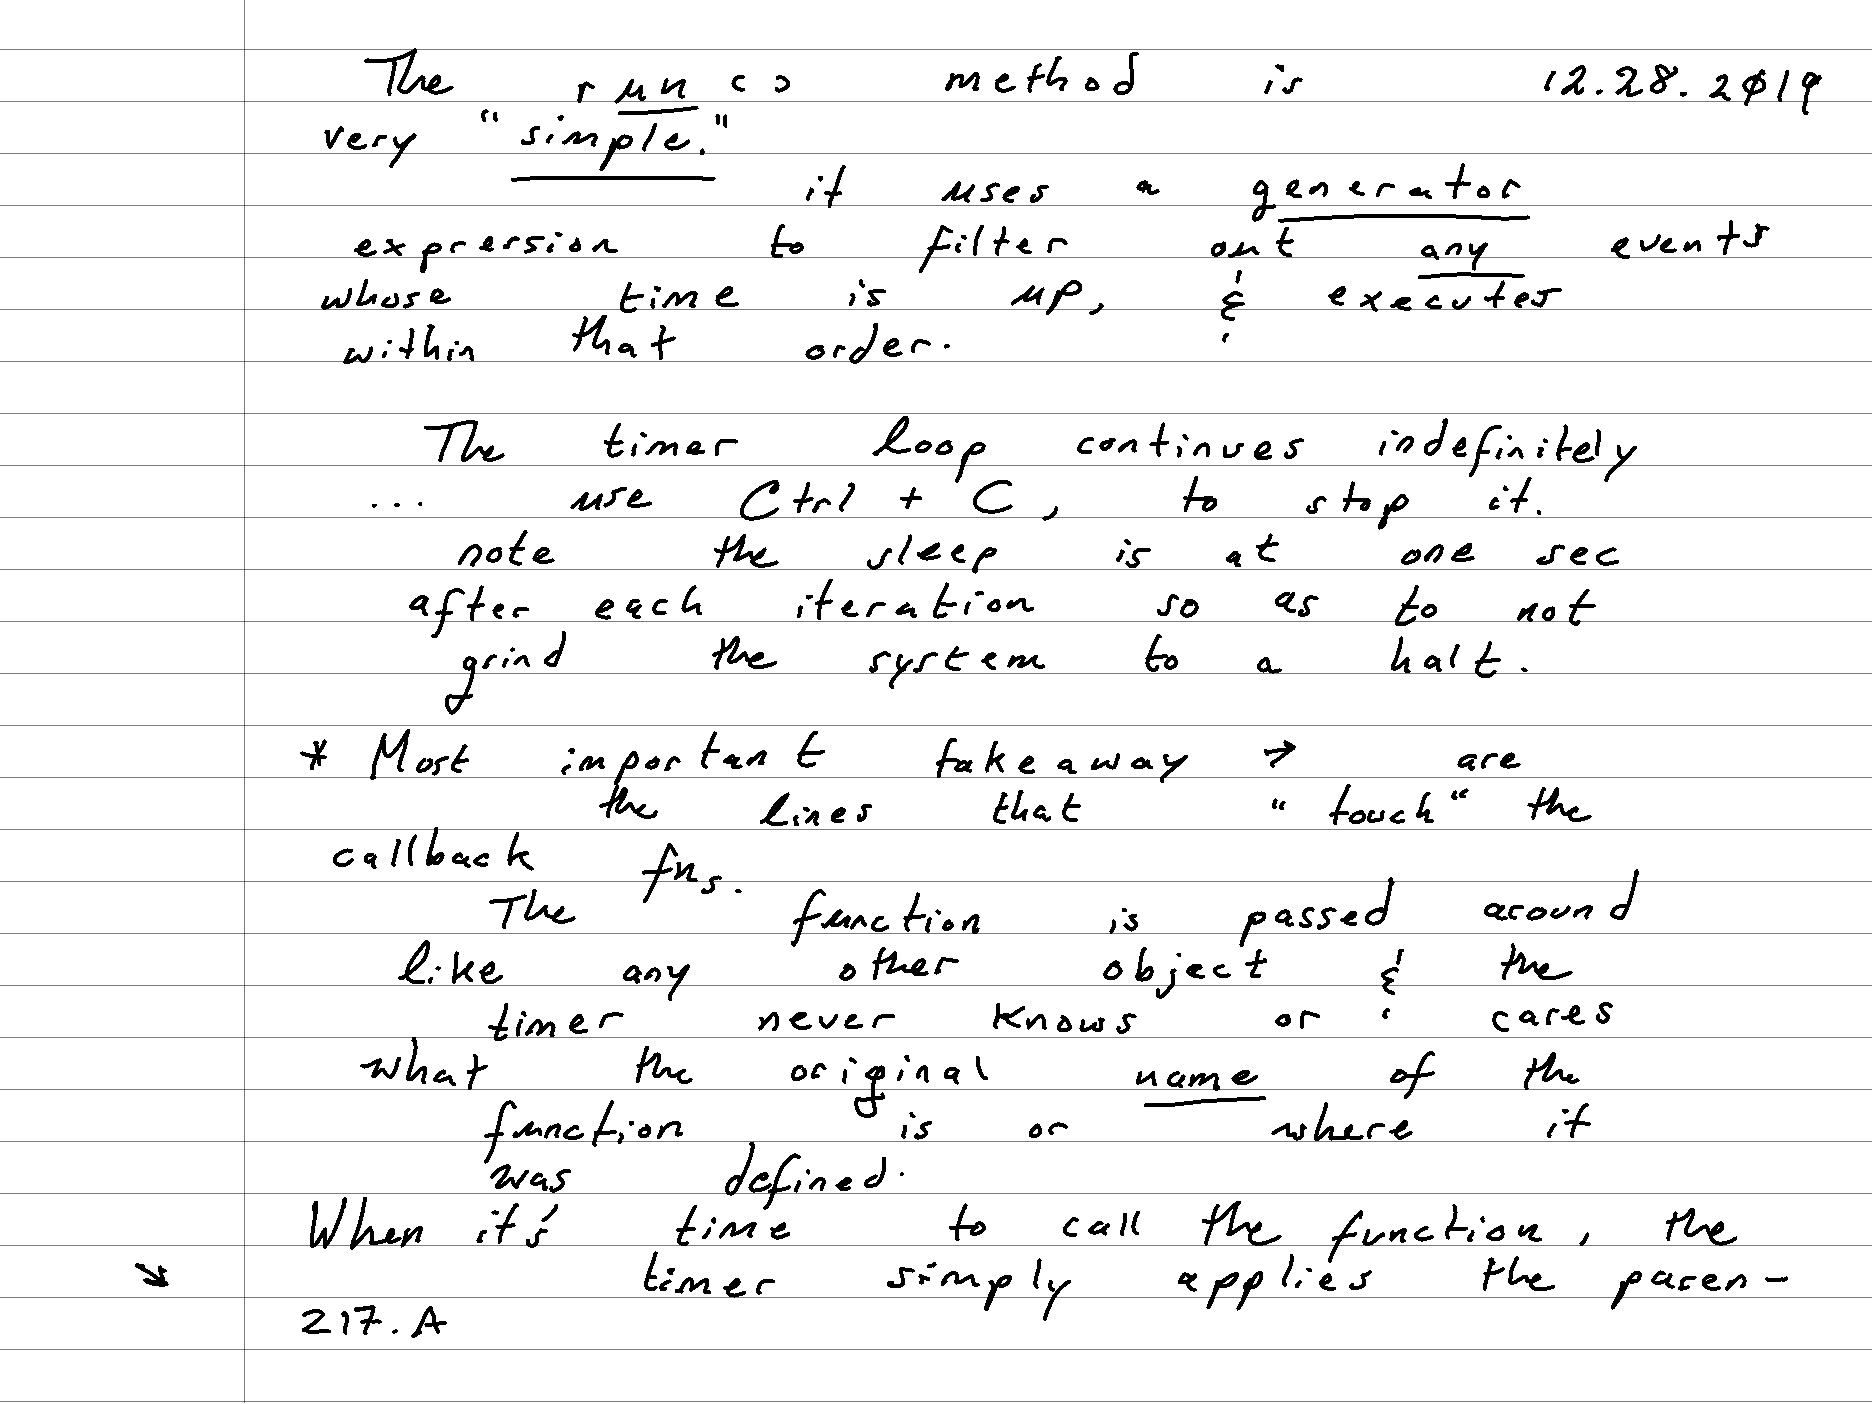 The run() method is 12.28.2019
very "simple."
it uses a generator
expression to filter out any events
whose time is up, & executes
within that order.
The timer loop continues indefinitely
... use Ctrl + C, to stop it.
note the sleep is at one sec
after each iteration so as to not
grind the system to a halt.
* Most important takeaway → are
the lines that "touch" the
callback fns.
The function is passed around
like any other object & the
timer never knows or cares
what the original name of the
function is or where it
was defined.
When it's time to call the function, the
↘ timer simply applies the paren-
217.A